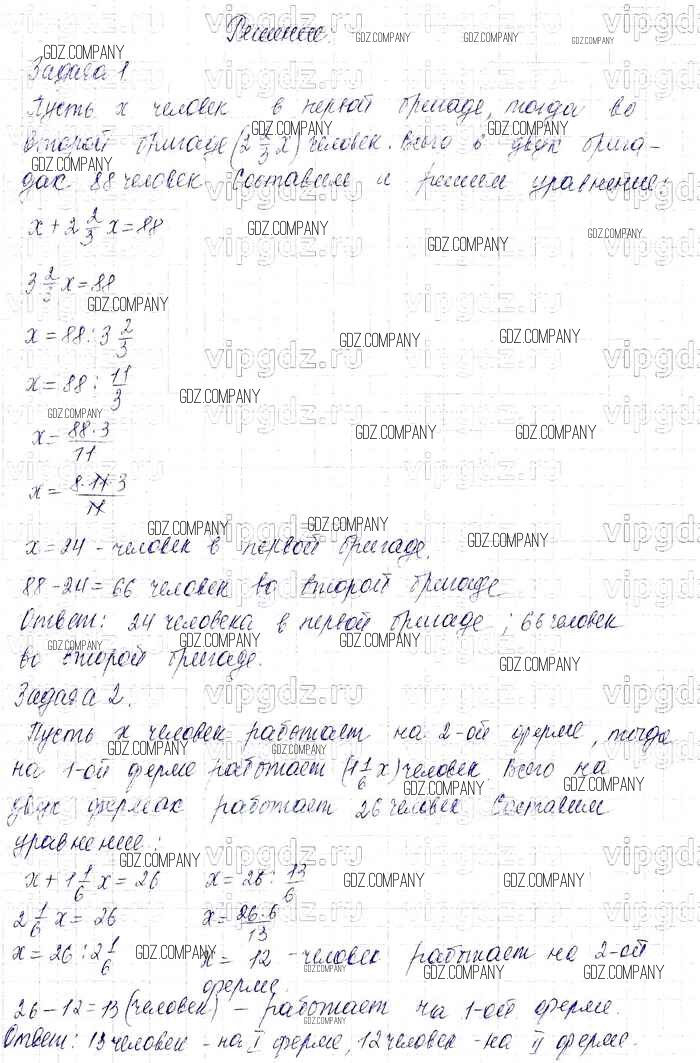 Решение.
Задача 1
Пусть x человек в первой бригаде, тогда во
второй бригаде (2 2/3 x) человек. Всего в двух брига-
дах 88 человек. Составим и решим уравнение:
x + 2 2/3 x = 88
3 2/3 x = 88
x = 88 : 3 2/3
x = 88 : 11/3
x = 88·3/11
x = 8·11·3/11
x = 24 - человек в первой бригаде.
88 - 24 = 66 человек во второй бригаде
Ответ: 24 человека в первой бригаде; 66 человек
во второй бригаде.
Задача 2.
Пусть x человек работает на 2-ой ферме, тогда
на 1-ой ферме работает (1 1/6 x) человек. Всего на
двух фермах работает 26 человек. Составим
уравнение:
x + 1 1/6 x = 26
2 1/6 x = 26
x = 26 : 2 1/6
x = 26 : 13/6
x = 26·6/13
x = 12 - человек работает на 2-ой
ферме.
26 - 12 = 13 (человек) - работает на 1-ой ферме.
Ответ: 13 человек - на I ферме, 12 человек - на II ферме.
GDZ.COMPANY
vipgdz.ru